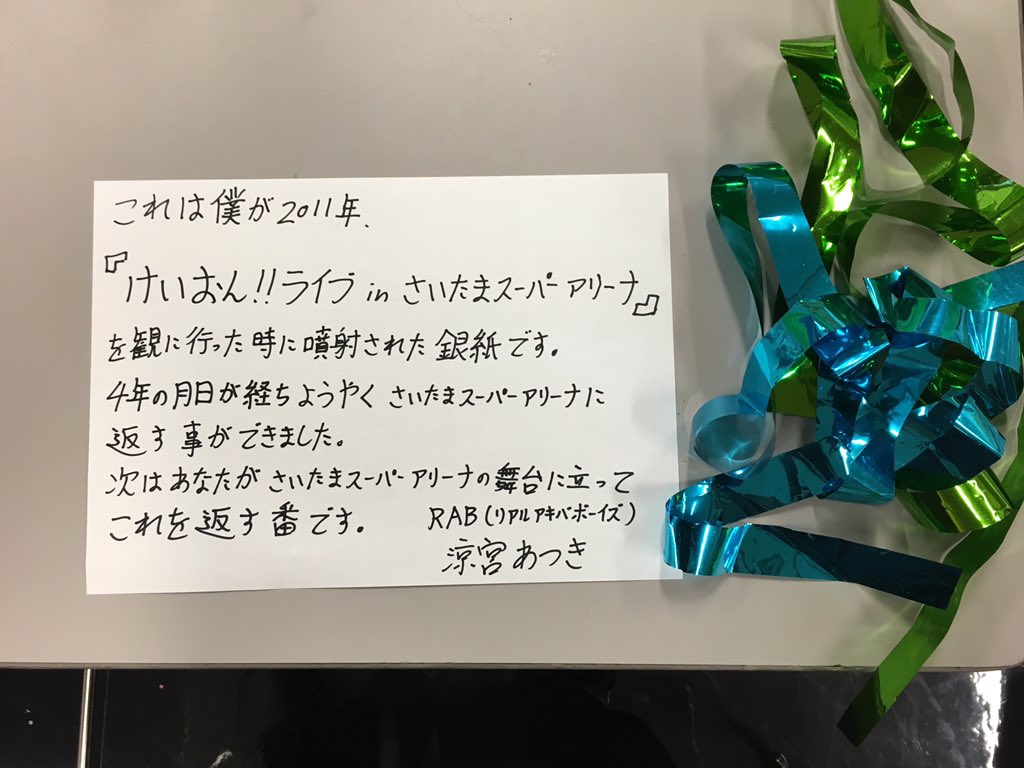 これは僕が2011年、
『けいおん!!ライブ in さいたまスーパーアリーナ』
を観に行った時に噴射された銀紙です。
4年の月日が経ちようやくさいたまスーパーアリーナに
返す事ができました。
次はあなたがさいたまスーパーアリーナの舞台に立って
これを返す番です。 RAB(リアルアキバボーイズ)
涼宮あつき